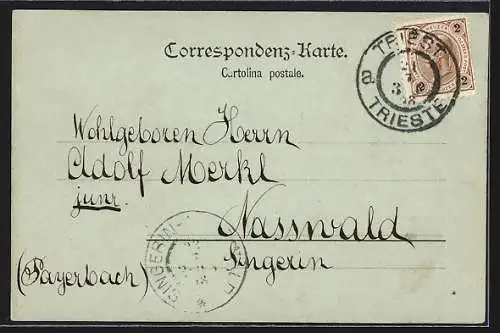 Correspondenz-Karte.
Cartolina postale.
TRIEST
TRIESTE
2
2
Wohlgeboren Herrn
Adolf Merkl
junr.
Nasswald
Singerin
(Payerbach)
SINGERIN